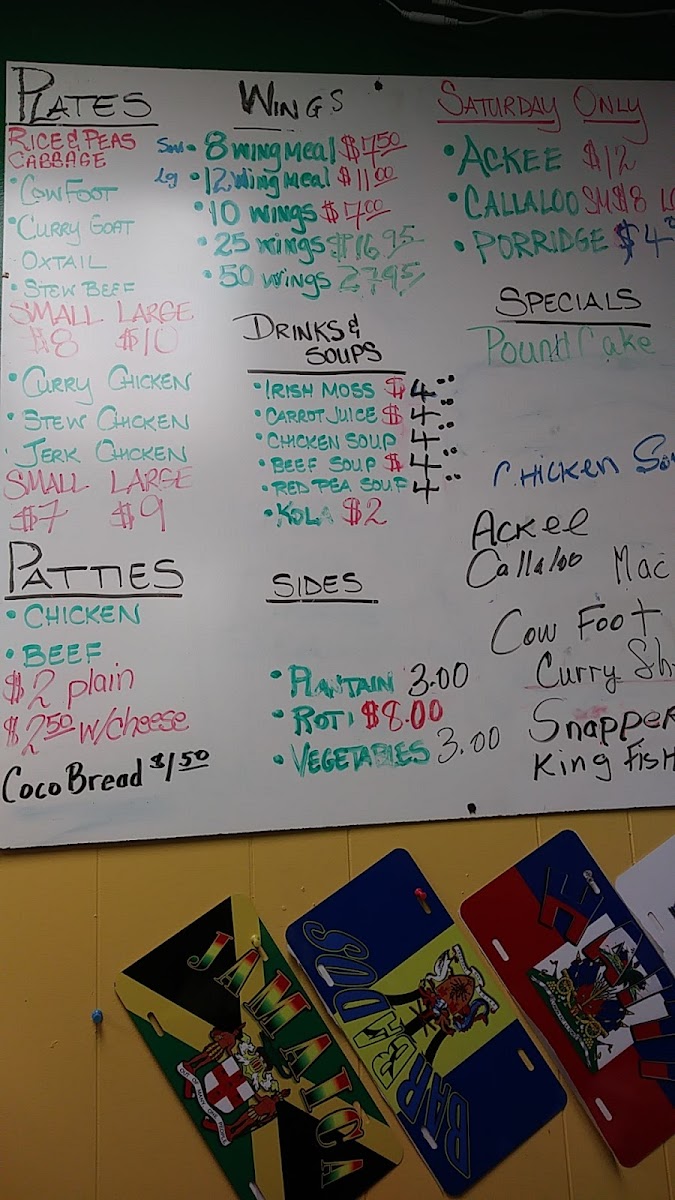 PLATES
RICE & PEAS
CABBAGE
• COWFOOT
• CURRY GOAT
OXTAIL
• STEW BEEF
SMALL LARGE
$8 $10
• CURRY CHICKEN
• STEW CHICKEN
JERK CHICKEN
SMALL LARGE
$7 $9
PATTIES
• CHICKEN
• BEEF
$2 plain
$2.50 w/cheese
Coco Bread $1.50
WINGS
Sml • 8 wing meal $7.50
Lg • 12 wing meal $11.00
• 10 wings $7.00
• 25 wings $16.95
• 50 wings 27.95
DRINKS &
SOUPS
• IRISH MOSS $4.00
• CARROT JUICE $4.00
• CHICKEN SOUP 4.00
• BEEF SOUP $4.00
• RED PEA SOUP 4.00
• KOLA $2
SIDES
• PLANTAIN 3.00
• ROTI $8.00
• VEGETABLES 3.00
SATURDAY ONLY
• ACKEE $12
• CALLALOO SM $8
• PORRIDGE $4
SPECIALS
Pound Cake
CHICKEN
Ackee
Callaloo Mac
Cow Foot
Curry
Snapper
King Fish
JAMAICA
OUT OF MANY, ONE PEOPLE
BARBADOS
HAITI